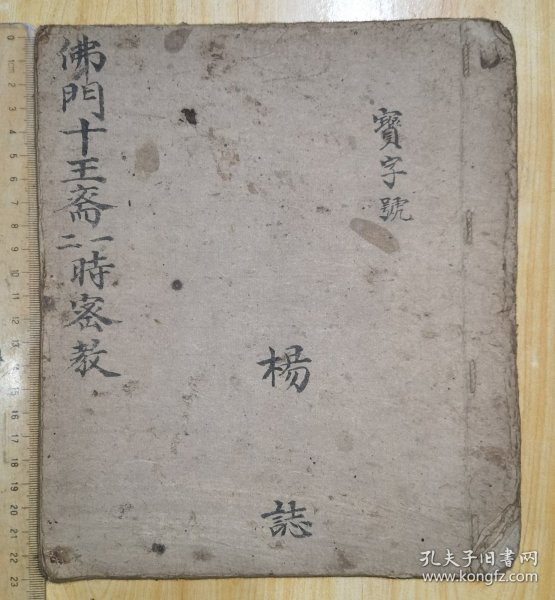 寳字號
楊
誌
佛門十王斋一二時密教
孔夫子旧书网
www.kongfz.com
0
1
2
3
4
5
6
7
8
9
10
11
12
13
14
15
16
17
18
19
20
21
22
23